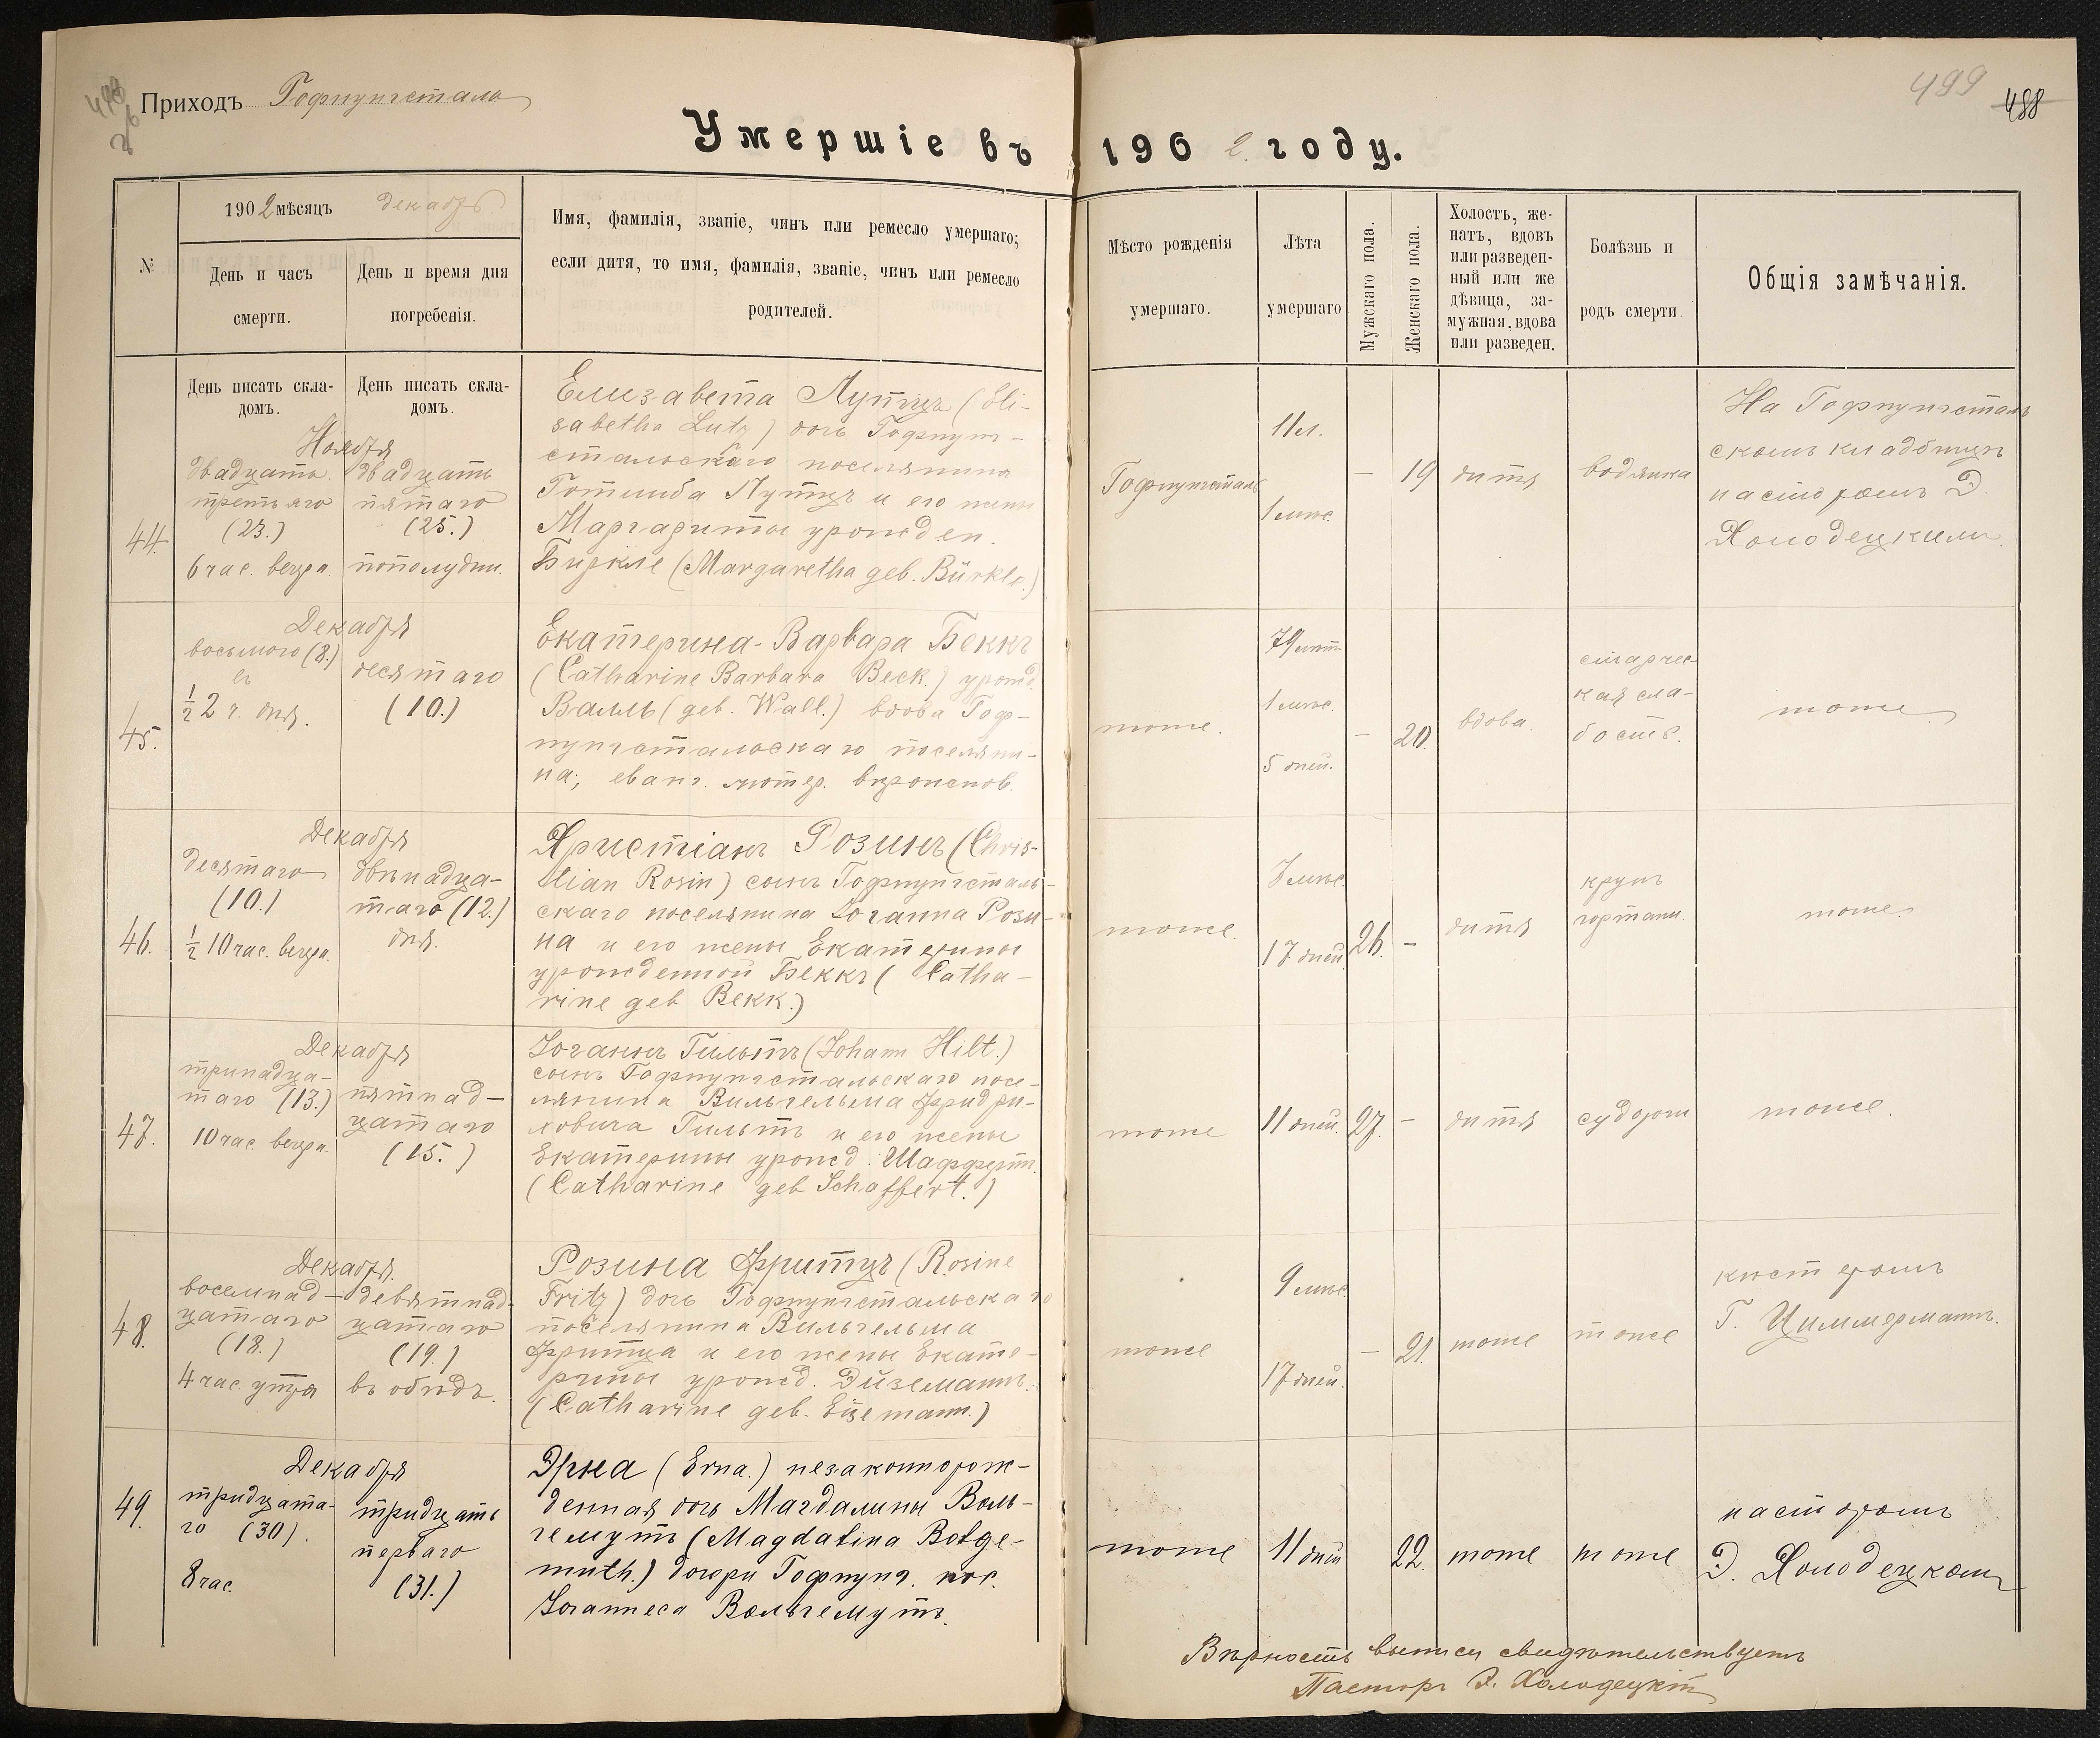 Приходъ Гофнунгсталь
499
488
Умершіе въ 1902 году.
№
1902 мѣсяцъ декабрь
День и часъ
смерти.
День и время дня
погребенія.
Имя, фамилія, званіе, чинъ или ремесло умершаго;
если дитя, то имя, фамилія, званіе, чинъ или ремесло
родителей.
Мѣсто рожденія
умершаго.
Лѣта
умершаго
Мужскаго пола.
Женскаго пола.
Холостъ, же-
натъ, вдовъ
или разведен-
ный или же
дѣвица, за-
мужная, вдова
или разведен.
Болѣзнь и
родъ смерти.
Общія замѣчанія.
День писать скла-
домъ.
День писать скла-
домъ.
44.
Ноября
двадцать
третьяго
(23.)
6 час. вечера.
двадцать
пятаго
(25.)
пополудни.
Елизавета Лутцъ (Eli-
sabetha Lutz) дочь Гофнунг-
стальскаго поселянина
Готлиба Лутцъ и его жены
Маргариты урожден.
Биркле (Margaretha geb. Bürkle.)
Гофнунгсталь
11 л.
1 мѣс.
–
19
дитя
водянка
На Гофнунгсталь
скомъ кладбищѣ
пасторомъ Э.
Холодецкимъ.
45.
Декабря
восьмого (8.)
въ
½ 2 ч. дня.
десятаго
(10.)
Екатерина-Варвара Беккъ
(Catharine Barbara Beck.) урожд.
Валль (geb. Wall.) вдова Гоф-
нунгстальскаго поселяни-
на, еванг. лютер. вѣроиспов.
тоже.
79 лѣтъ
1 мѣс.
5 дней.
–
20.
вдова.
старчес-
кая сла-
бость.
тоже
46.
Декабря
десятаго
(10.)
½ 10 час. вечера.
двѣнадца-
таго (12.)
дня.
Христіанъ Розинъ (Chris-
tian Rosin) сынъ Гофнунгсталь-
скаго поселянина Іоганна Рози-
на и его жены Екатерины
урожденной Беккъ (Catha-
rine geb Bekk.)
тоже.
7 мѣс.
17 дней
26.
–
дитя
крупъ
гортани.
тоже.
47.
Декабря
тринадца-
таго (13.)
10 час. вечера.
пятнад-
цатаго
(15.)
Іоганнъ Гильтъ (Johann Hilt.)
сынъ Гофнунгстальскаго посе-
лянина Вильгельма Фридри-
ховича Гильтъ и его жены
Екатерины урожд. Шаффертъ.
(Catharine geb Schaffert.)
тоже
11 дней.
27.
–
дитя
судороги
тоже.
48.
Декабря.
восемнад-
цатаго
(18.)
4 час. утра
девятнад-
цатаго
(19.)
въ обѣдъ.
Розина Фритцъ (Rosine
Fritz) дочь Гофнунгстальскаго
поселянина Вильгельма
Фритца и его жены Екате-
рины урожд. Эйземаннъ.
(Catharine geb. Eisemann.)
тоже
9 мѣс.
17 дней.
–
21.
тоже
тоже
кистеромъ
Г. Циммерманъ.
49.
Декабря
тридцата-
го (30).
8 час.
тридцать
перваго
(31.)
Эрна (Erna.) незаконнорож-
денная дочь Магдалины Воль-
гемутъ (Magdalina Bolge-
muth.) дочери Гофнунг. пос.
Іоаннеса Вольгемутъ.
тоже
11 дней
22.
тоже
тоже
пасторомъ
Э. Холодецкомъ
Вѣрность выписи свидѣтельствуетъ
Пасторъ Э. Холодецкій